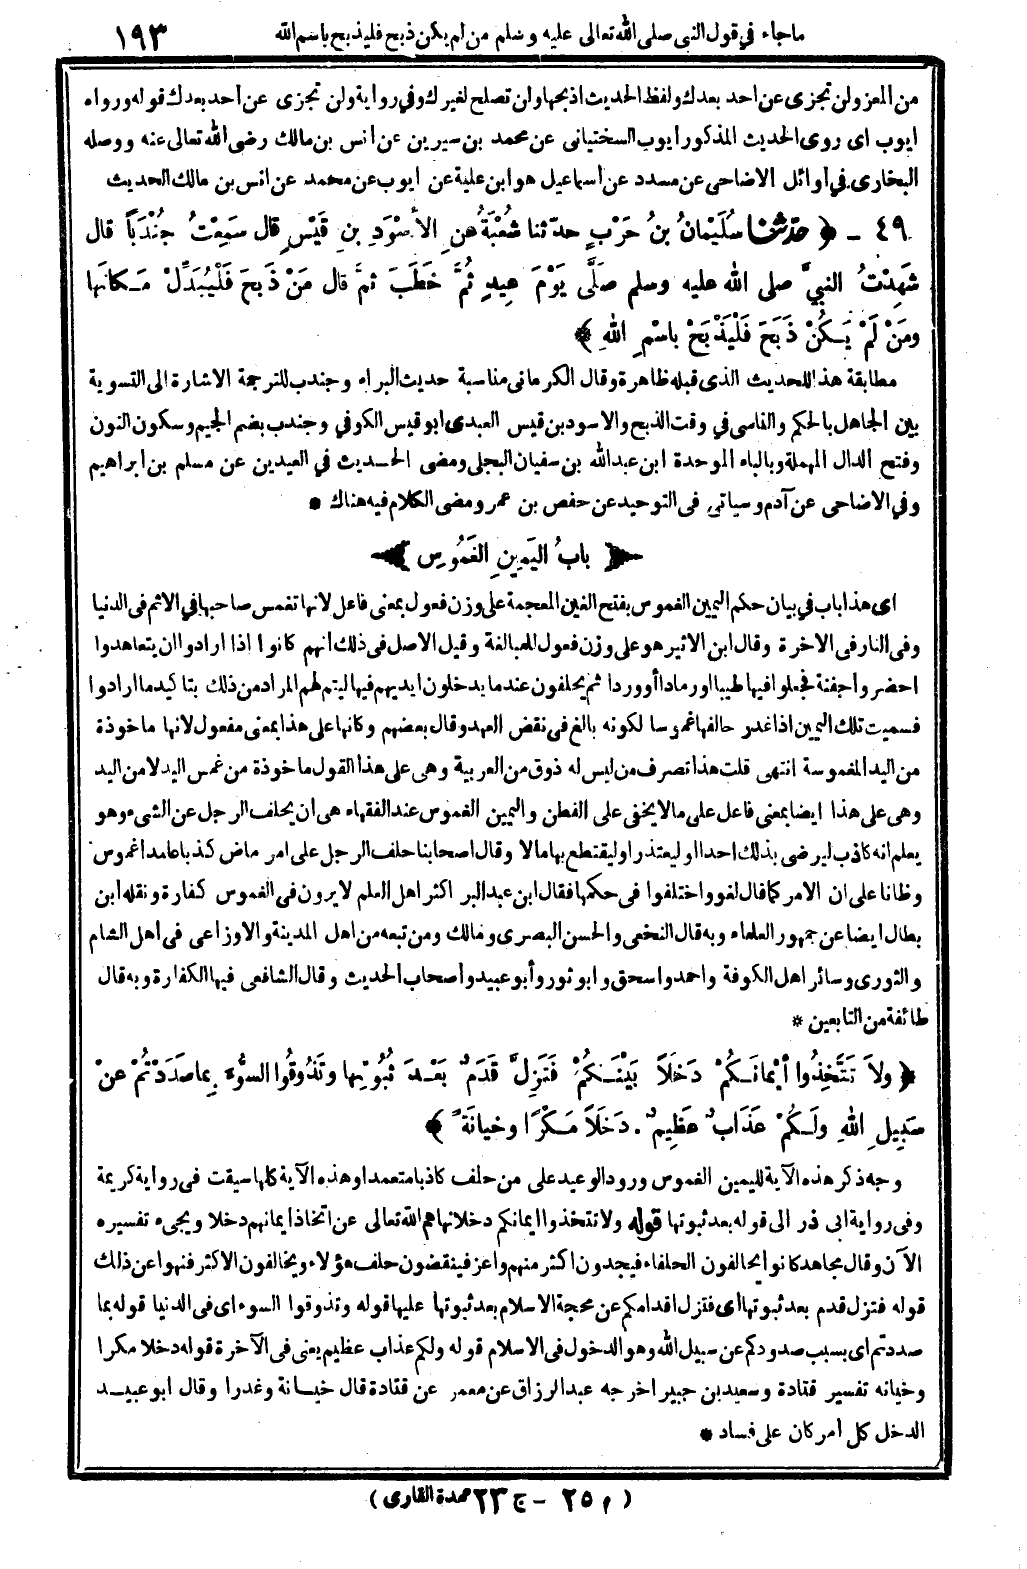 ماجاء في قول النبي صلى الله تعالى عليه وسلم من لم يكن ذبح فليذبح باسم الله ١٩٣
من المعز ولن تجزى عن احد بعدك ولفظ الحديث اذبحها ولن تصلح لغيرك وفي رواية ولن تجزى عن أحد بعدك قوله ورواه
ايوب اى روى الحديث المذكور ايوب السختيانى عن محمد بن سيرين عن انس بن مالك رضى الله تعالى عنه ووصله
البخارى في أوائل الاضاحى عن مسدد عن أسماعيل هو ابن علية عن ايوب عن محمد عن انس بن مالك الحديث
٤٩ - ﴿ حدّثنا سُلَيْمانُ بنُ حَرْبٍ حدّثنا شُعْبَةُ عنِ الأسْوَدِ بنِ قَيْسٍ قال سَمِعْتُ جُنْدَباً قال
شَهِدْتُ النبيَّ صلى الله عليه وسلم صَلَّى يَوْمَ عِيدٍ ثُمَّ خَطَبَ ثمَّ قال مَنْ ذَبحَ فَلْيُبَدِّلْ مَكانَها
ومَنْ لَمْ يَكُنْ ذَبَحَ فَلْيَذْبَحْ باسْمِ اللهِ ﴾
مطابقة هذا للحديث الذى قبله ظاهرة وقال الكرمانى مناسبة حديث البراء وجندب للترجمة الاشارة الى التسوية
بين الجاهل بالحكم والناسى في وقت الذبح والاسود بن قيس العبدى ابو قيس الكوفي وجندب بضم الجيم وسكون النون
وفتح الدال المهملة وبالباء الموحدة ابن عبدالله بن سفيان البجلى ومضى الحديث في العيدين عن مسلم بن ابراهيم
وفي الاضاحى عن آدم وسياتى فى التوحيد عن حفص بن عمر ومضى الكلام فيه هناك *
﴿ بابُ اليَمِينِ الغَمُوسِ ﴾
اى هذا باب في بيان حكم اليمين الغموس بفتح الغين المعجمة على وزن فعول بمعنى فاعل لانها تغمس صاحبها في الاثم فى الدنيا
وفى النار فى الاخرة وقال ابن الاثير هو على وزن فعول للمبالغة وقيل الاصل فى ذلك انهم كانوا اذا ارادوا ان يتعاهدوا
احضروا جفنة فجعلوا فيها طيبا اور مادا أووردا ثم يحلفون عند ما يدخلون ايديهم فيها ليتم لهم المراد من ذلك بتا كيد ما ارادوا
فسميت تلك اليمين اذا غدر حالفها غموسا لكونه بالغ فى نقض العهد وقال بعضهم وكانها على هذا بمعنى مفعول لانها ماخوذة
من اليد المغموسة انتهى قلت هذا تصرف من ليس له ذوق من العربية وهى على هذا القول ماخوذة من غمس اليد لا من اليد
وهى على هذا ايضا بمعنى فاعل على مالا يخفى على الفطن واليمين الغموس عند الفقهاء هى ان يحلف الرجل عن الشىء وهو
يعلم انه كاذب ليرضى بذلك احدا او ليعتذر او ليقتطع بها مالا وقال اصحابنا حلف الرجل على امر ماض كذبا عامدا غموس
وظانا على ان الامر كما قال لغو واختلفوا فى حكمها فقال ابن عبدالبر اكثر اهل العلم لا يرون فى الغموس كفارة ونقله ابن
بطال ايضا عن جمهور العلماء وبه قال النخعى والحسن البصرى ومالك ومن تبعه من اهل المدينة والاوزاعى فى اهل الشام
والثورى وسائر اهل الكوفة واحمد واسحق وابو ثور وأبو عبيد وأصحاب الحديث وقال الشافعى فيها الكفارة وبه قال
طائفة من التابعين *
﴿ ولاَ تَتَّخِذُوا أيْمانَكُمْ دَخَلاً بَيْنَكُمْ فَتَزِلَّ قَدَمٌ بَعْدَ ثُبُوتِها وتَذُوقُوا السوُّءَ بِماصَدَدْتُمْ عنْ
سَبِيلِ اللهِ ولَكُمْ عَذَابٌ عَظِيمٌ . دَخَلاً مَكْرًا وخيانَةً ﴾
وجه ذكر هذه الآية لليمين الغموس ورود الوعيد على من حلف كاذبا متعمدا وهذه الآية كلها سيقت فى رواية كريمة
وفى رواية ابى ذر الى قوله بعد ثبوتها قوله ولا تتخذوا ايمانكم دخلا نهاهم الله تعالى عن اتخاذ ايمانهم دخلا ويجىء تفسيره
الآن وقال مجاهد كانوا يحالفون الحلفاء فيجدون اكثر منهم واعز فينقضون حلف هؤلاء ويحالفون الاكثر فنهوا عن ذلك
قوله فتزل قدم بعد ثبوتها أى فتزل اقدامكم عن محجة الاسلام بعد ثبوتها عليها قوله وتذوقوا السوء اى فى الدنيا قوله بما
صددتم اى بسبب صدودكم عن سبيل الله وهو الدخول فى الاسلام قوله ولكم عذاب عظيم يعنى فى الآخرة قوله دخلا مكرا
وخيانه تفسير قتادة وسعيد بن جبير اخرجه عبدالرزاق عن معمر عن قتادة قال خيانة وغدرا وقال ابو عبيد
الدخل كل أمر كان على فساد *
( م ٢٥ - ج ٢٣ عمدة القارى )